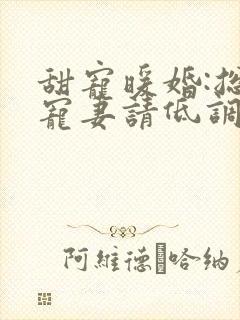 甜寵暖婚:
寵妻請低調
阿維德 哈納